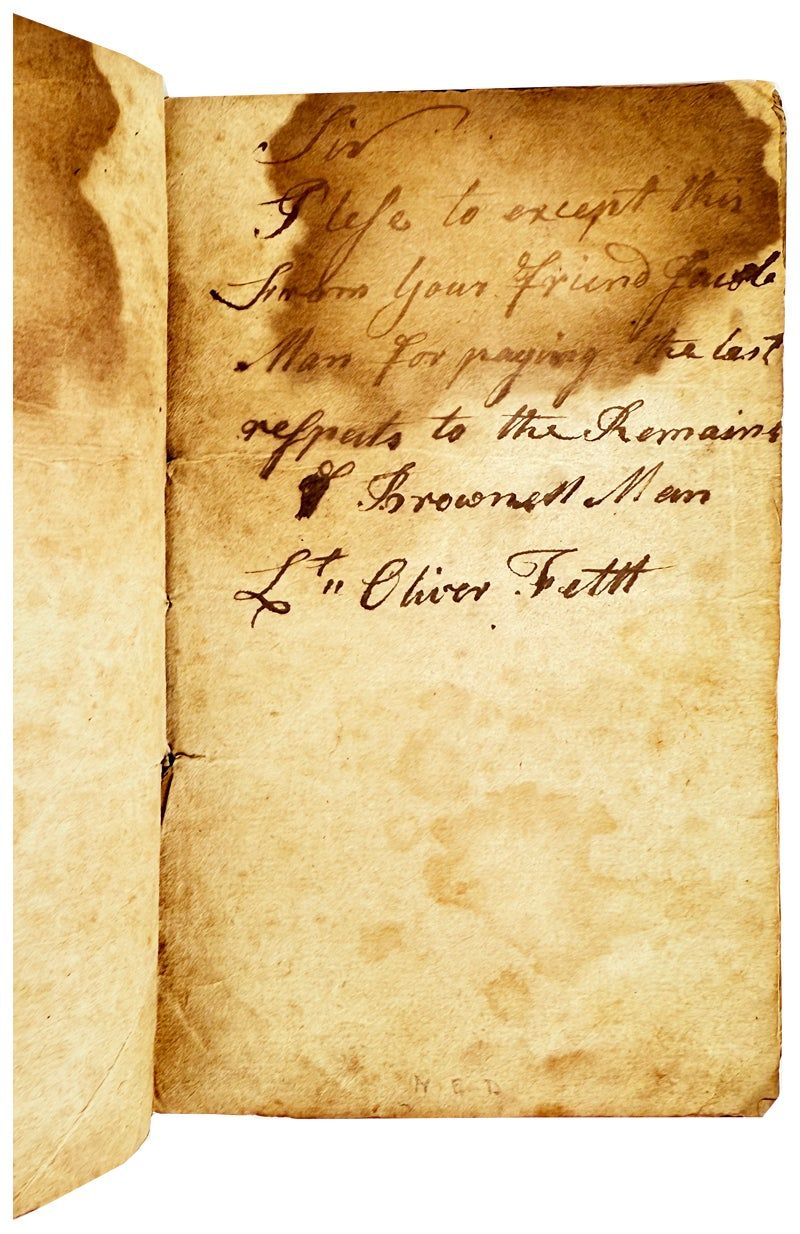 Sir
Plese to except this
From Your Friend Jacob
Man for paying the last
respects to the Remains
of Brownell Man
Lt" Oliver Fettt
N E D